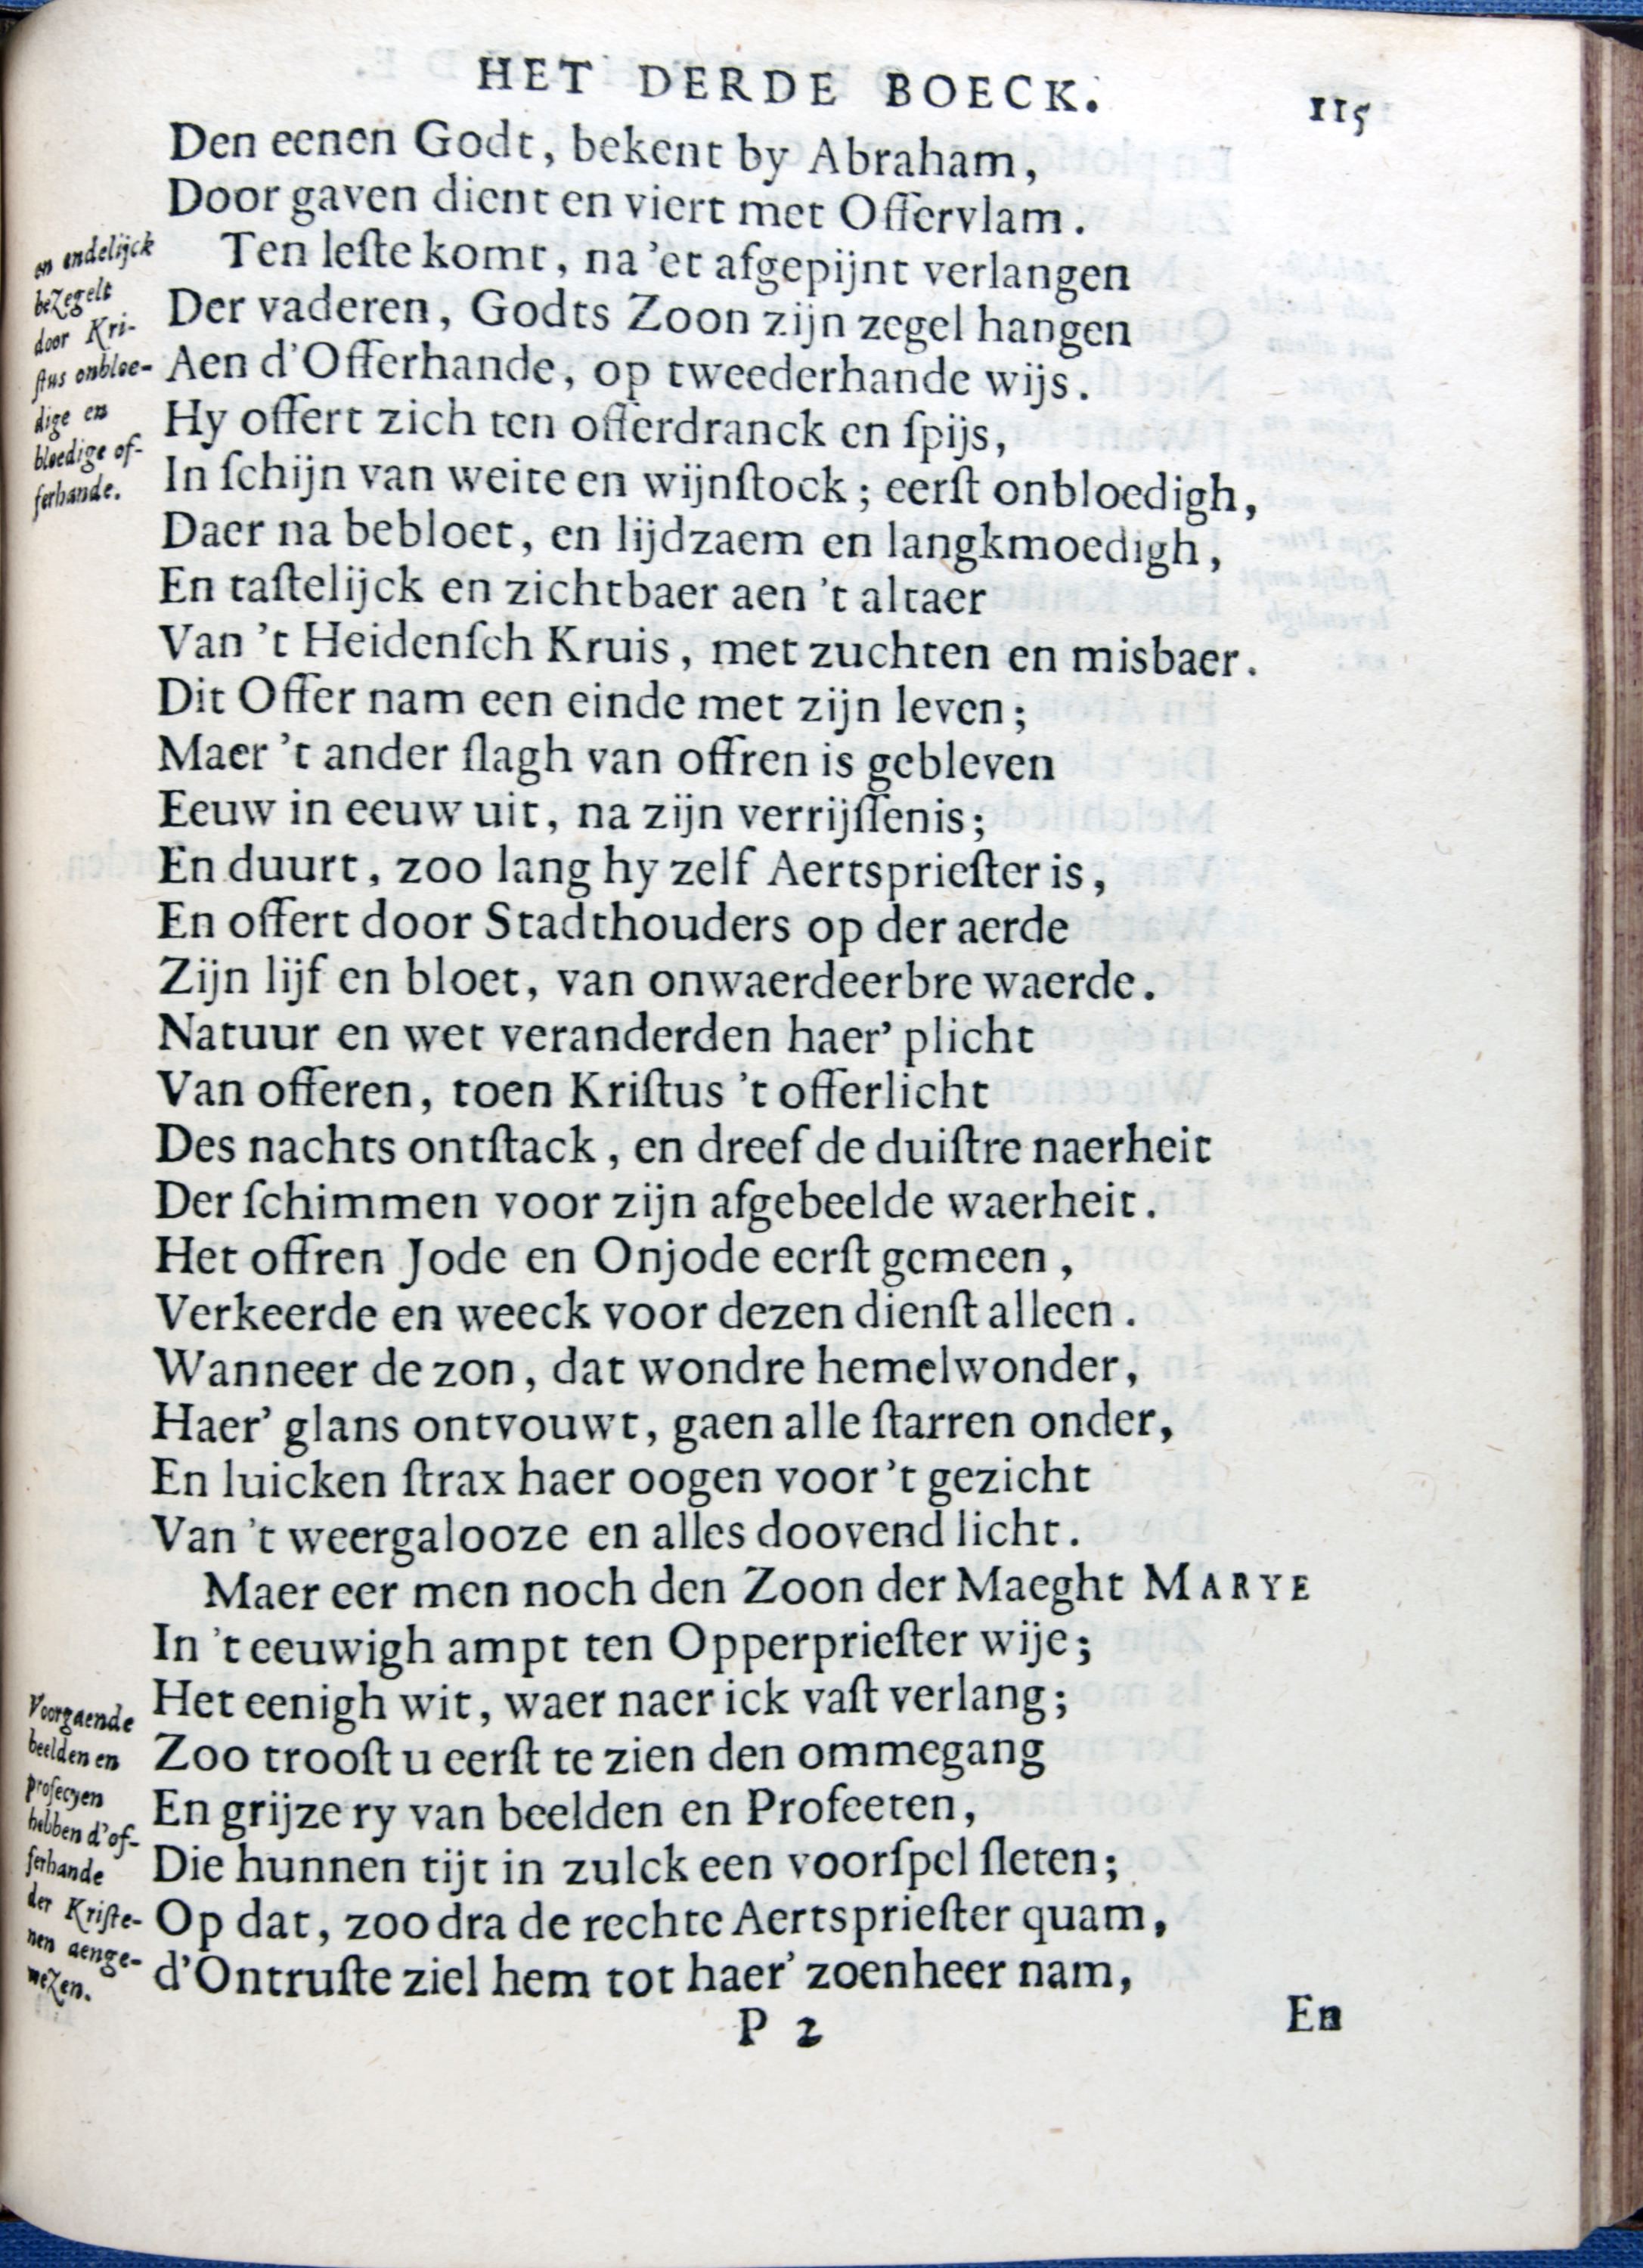 HET DERDE BOECK. 115
Den eenen Godt, bekent by Abraham,
Door gaven dient en viert met Offervlam.
Ten leſte komt, na 'et afgepijnt verlangen
Der vaderen, Godts Zoon zijn zegel hangen
Aen d'Offerhande, op tweederhande wijs.
Hy offert zich ten offerdranck en ſpijs,
In ſchijn van weite en wijnſtock; eerſt onbloedigh,
Daer na bebloet, en lijdzaem en langkmoedigh,
En taſtelijck en zichtbaer aen 't altaer
Van 't Heidenſch Kruis, met zuchten en misbaer.
Dit Offer nam een einde met zijn leven;
Maer 't ander ſlagh van offren is gebleven
Eeuw in eeuw uit, na zijn verrijſſenis;
En duurt, zoo lang hy zelf Aertsprieſter is,
En offert door Stadthouders op der aerde
Zijn lijf en bloet, van onwaerdeerbre waerde.
Natuur en wet veranderden haer' plicht
Van offeren, toen Kriſtus 't offerlicht
Des nachts ontſtack, en dreef de duiſtre naerheit
Der ſchimmen voor zijn afgebeelde waerheit.
Het offren Jode en Onjode eerſt gemeen,
Verkeerde en weeck voor dezen dienſt alleen.
Wanneer de zon, dat wondre hemelwonder,
Haer' glans ontvouwt, gaen alle ſtarren onder,
En luicken ſtrax haer oogen voor 't gezicht
Van 't weergalooze en alles doovend licht.
Maer eer men noch den Zoon der Maeght MARYE
In 't eeuwigh ampt ten Opperprieſter wije;
Het eenigh wit, waer naer ick vaſt verlang;
Zoo trooſt u eerſt te zien den ommegang
En grijze ry van beelden en Profeeten,
Die hunnen tijt in zulck een voorſpel ſleten;
Op dat, zoo dra de rechte Aertsprieſter quam,
d'Ontruſte ziel hem tot haer' zoenheer nam,
P 2 En
en endelijck
bezegelt
door Kri-
ſtus onbloe-
dige en
bloedige of-
ferhande.
Voorgaende
beelden en
profecyen
hebben d'of-
ferhande
der Kriſte-
nen aenge-
wezen.